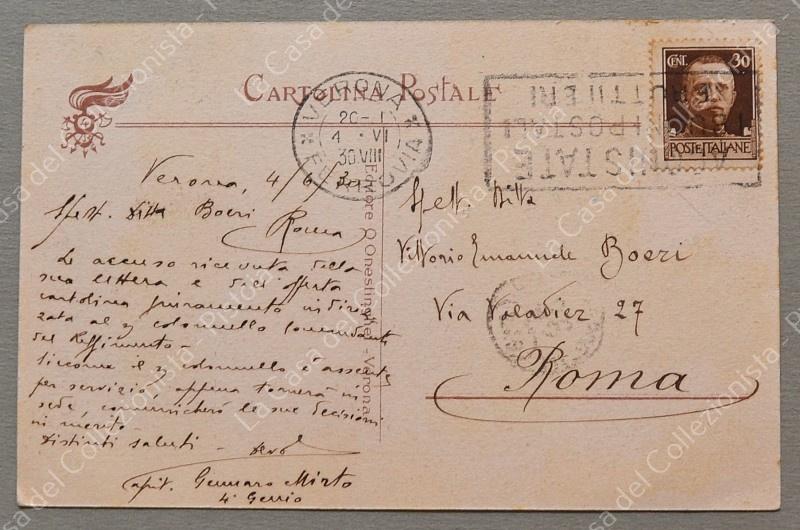 CARTOLINA POSTALE
VERONA
20-1
4 · VI
30 VIII
FERROVIA
CENT. 30
POSTE ITALIANE
Verona, 4/6/30
Spett. Ditta Boeri
Roma
Le accuso ricevuta della
sua lettera e dell'offerta
cartolina giuramento indiriz
zata al Sig. colonnello Comandante
del Reggimento -
Siccome il Sig. colonnello è assente
per servizio, appena tornerà in
sede, comunicherò le sue decisioni
in merito.
Distinti saluti -
Capit. Gennaro Mirto
4° Genio
Spett. Ditta
Vittorio Emanuele Boeri
Via Valadier 27
Roma
Editore O. Onestinghel - Verona
La Casa del Collezionista - Pistoia